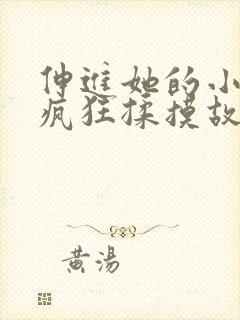 伸进她的小
疯狂揉摸故
黄汤